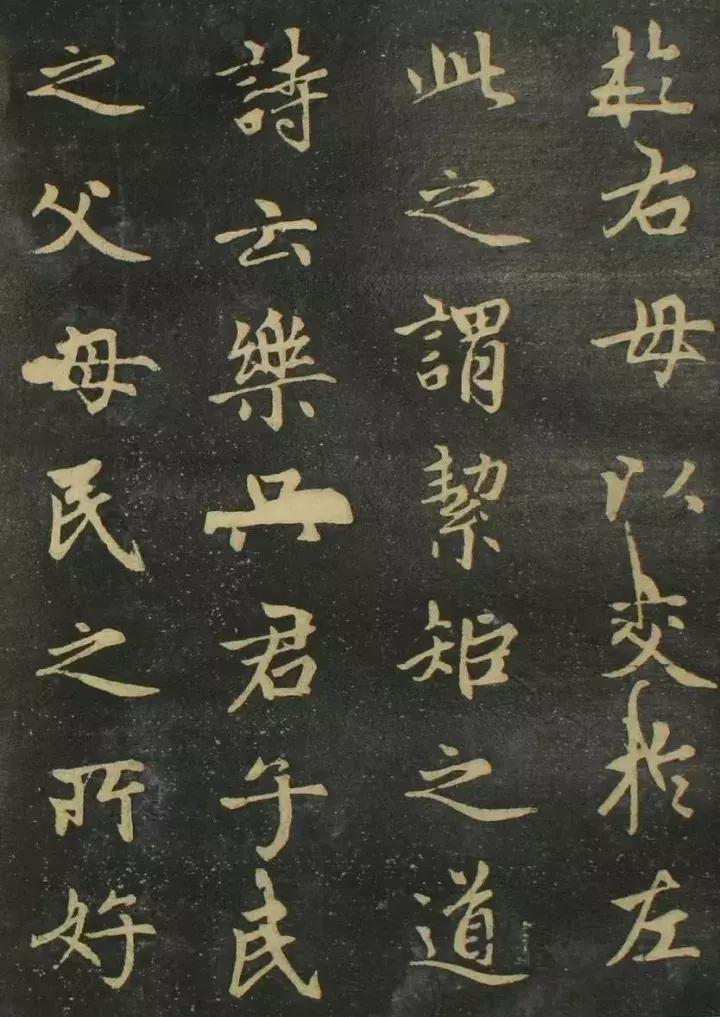 於右毋以交於左
此之謂絜矩之道
詩云樂只君子民
之父母民之所好